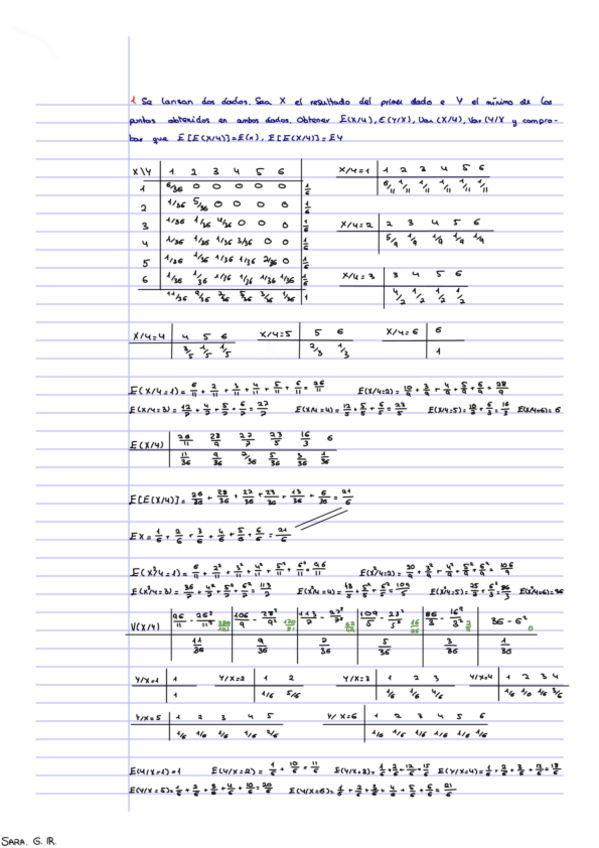 1 Se lanzan dos dados. Sea X el resultado del primer dado e Y el mínimo de los
puntos obtenidos en ambos dados. Obtener E(X/Y), E(Y/X), Var (X/Y), Var (Y/X y compro-
bar que E[E(X/Y)]=E(x), E[E(X/Y)]=EY
X\Y 1 2 3 4 5 6
1 6/36 0 0 0 0 0 1/6
2 1/36 5/36 0 0 0 0 1/6
3 1/36 1/36 4/36 0 0 0 1/6
4 1/36 1/36 1/36 3/36 0 0 1/6
5 1/36 1/36 1/36 1/36 2/36 0 1/6
6 1/36 1/36 1/36 1/36 1/36 1/36 1/6
11/36 9/36 7/36 5/36 3/36 1/36 1
X/Y=1 1 2 3 4 5 6
6/11 1/11 1/11 1/11 1/11 1/11
X/Y=2 2 3 4 5 6
5/9 1/9 1/9 1/9 1/9
X/Y=3 3 4 5 6
4/7 1/7 1/7 1/7
X/Y=4 4 5 6
3/5 1/5 1/5
X/Y=5 5 6
2/3 1/3
X/Y=6 6
1
E(X/Y=1)= 6/11 + 2/11 + 3/11 + 4/11 + 5/11 + 6/11 = 26/11 E(X/Y=2)= 10/9 + 3/9 + 4/9 + 5/9 + 6/9 = 28/9
E(X/Y=3)= 12/7 + 4/7 + 5/7 + 6/7 = 27/7 E(X/Y=4)= 12/5 + 5/5 + 6/5 = 23/5 E(X/Y=5)= 10/3 + 6/3 = 16/3 E(X/Y=6)= 6
E(X/Y) 26/11 28/9 27/7 23/5 16/3 6
11/36 9/36 7/36 5/36 3/36 1/36
E[E(X/Y)]= 26/36 + 28/36 + 27/36 + 23/36 + /36 + 6/36 = 21/6
EX= 1/6 + 2/6 + 3/6 + 4/6 + 5/6 + 6/6 = 21/6
E(X²/Y=1)= 6/11 + 2²/11 + 3²/11 + 4²/11 + 5²/11 + 6²/11 = 96/11 E(X²/Y=2)= 20/9 + 3²/9 + 4²/9 + 5²/9 + 6²/9 = 106/9
E(X²/Y=3)= 36/7 + 4²/7 + 5²/7 + 6²/7 = 113/7 E(X²/Y=4)= 48/5 + 5²/5 + 6²/5 = 109/5 E(X²/Y=5)= /3 + 6²/3 = 86/3 E(X²/Y=6)= 36
V(X/Y) 96/11 - 26²/11² 106/9 - 28²/9² 113/7 - 27²/7² 109/5 - 23²/5² 86/3 - 16²/3² 36 - 6² 0
11/36 9/36 7/36 5/36 3/36 1/36
Y/X=1 1
1
Y/X=2 1 2
1/6 5/6
Y/X=3 1 2 3
1/6 1/6 4/6
Y/X=4 1 2 3 4
1/6 1/6 1/6 3/6
Y/X=5 1 2 3 4 5
1/6 1/6 1/6 1/6 2/6
Y/X=6 1 2 3 4 5 6
1/6 1/6 1/6 1/6 1/6 1/6
E(Y/X=1)=1 E(Y/X=2)= 1/6 + 10/6 = 11/6 E(Y/X=3)= 1/6 + 2/6 + 12/6 = 15/6 E(Y/X=4)= 1/6 + 2/6 + 3/6 + 12/6 = 18/6
E(Y/X=5)= 1/6 + 2/6 + 3/6 + 4/6 + 10/6 = 20/6 E(Y/X=6)= 1/6 + 2/6 + 3/6 + 4/6 + 5/6 + 6/6 = 21/6
SARA. G. R.